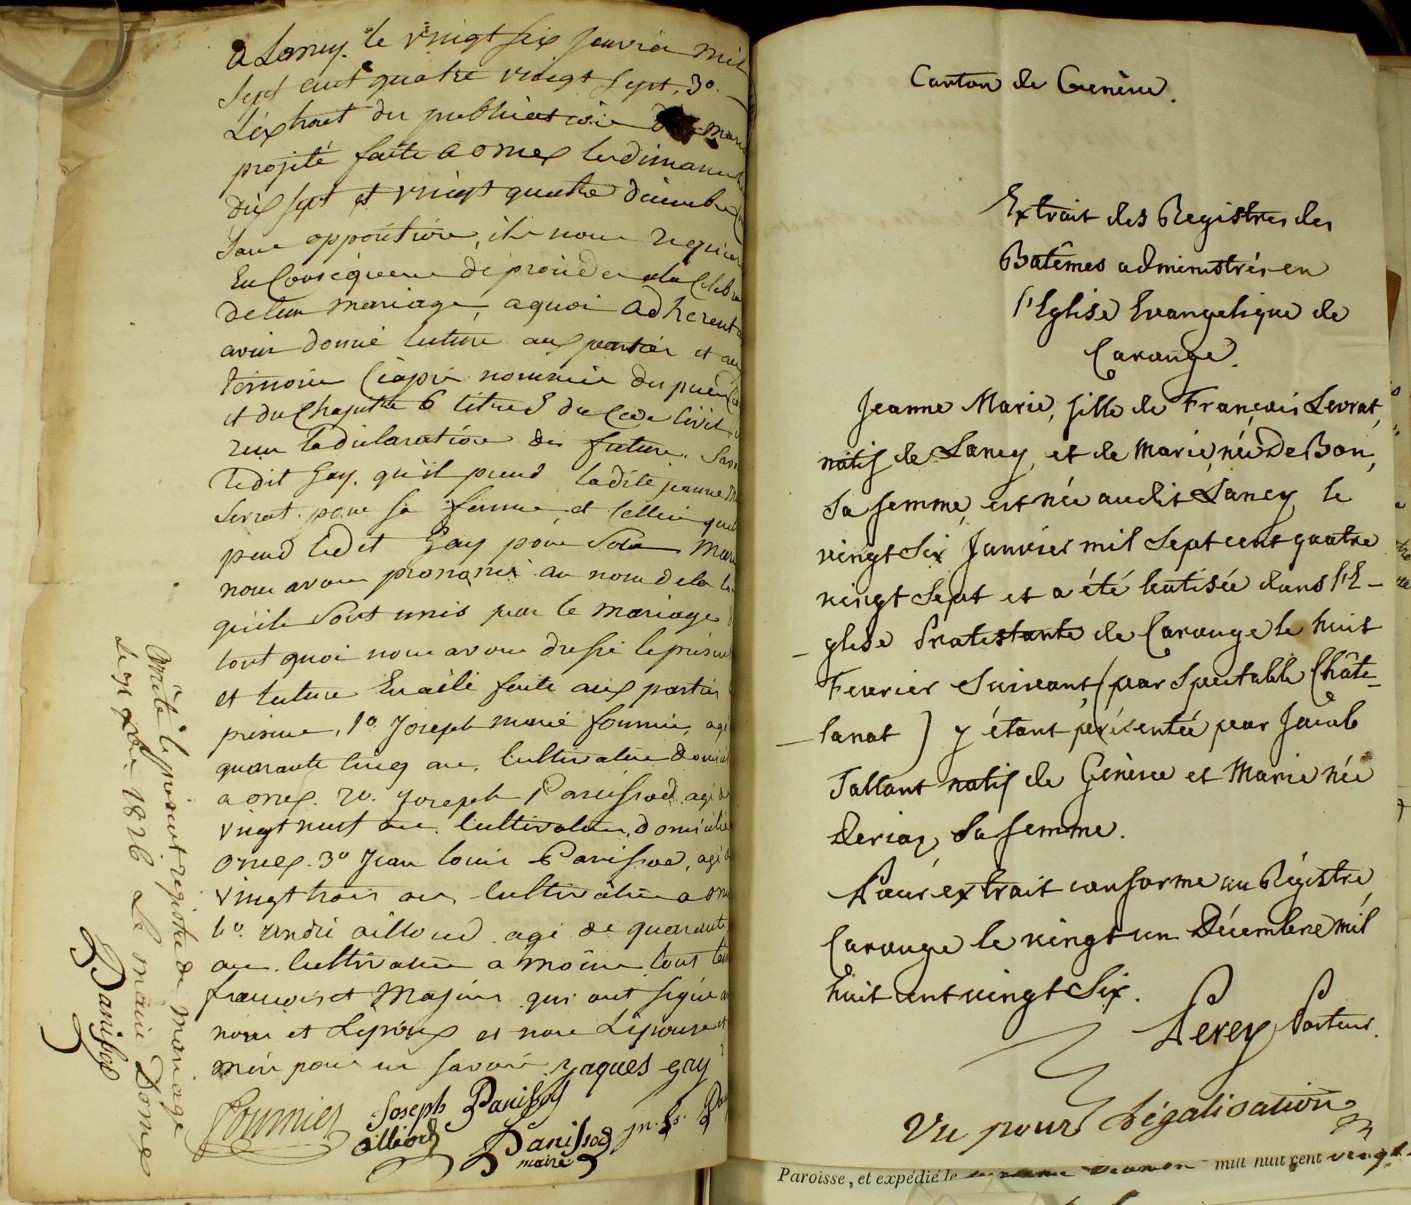 a Lancy. le vingt six Janvier mil
Sept cent quatre vingt sept. 3o.
L'Extrait du publication
projeté faite a onex les dimanche
dix sept et vingt quatre décembre
Sans opposition, ils nous requier
En Conséquence de procéder a la Celebra
de leur mariage, a quoi adherent
avoir donné lecture aux parties et au
témoins Ciaprè nommés des pièces
et du Chapitre 6 titre 5 du Code Civil
reçu la déclaration des futurs. Savoir
Ledit Gay. qu'il prend ladite jeanne M
Servat. pour sa femme, et celleci quel
prend ledit Gay pour Son Mari
nous avons prononcé au nom de la Loi
qu'ils Sont unis par le mariage
tout quoi nous avons dressé le présent
et lecture En a été faite aux parties
présence, 1o. Joseph marie fournier, agé
quarante cinq ans. Cultivateur domicil
a onex. 2o. Joseph Panissod. agé de
vingt neuf ans. Cultivateur, domicilié
onex. 3o Jean Louis Panissod, agé de
vingt trois ans Cultivateur a onex
4o. andré ailloud agé de quarante
ans. Cultivateur a tous
françois et Majeurs qui ont signé a
nous et L'époux et non L'épouse et
mère pour ne savoir. jaques gay
Fournier Joseph Panissod
aillioud Panissod jn. Ls. Pa
maire
Arrêté le présent registre de mariage
1826 Le maire D'onex
Panissod
Canton de Genève.
Extrait des Registres des
Batêmes administrés en
l'Eglise Evangelique de
Carouge.
Jeanne Marie, fille de François Servat,
natif de Lancy, et de Marie, née De Bon,
Sa femme, est née audit Lancy le
vingt Six Janvier mil Sept cent quatre
vingt Sept et a été batisée dans l'E-
-glise Protestante de Carouge le huit
Fevrier Suivant, (par Spectable Châte-
-lanat) y étant présentée par Jacob
Tallant natif de Genève et Marie née
Deriaz Sa femme.
Pour extrait conforme au Régistre,
Carouge le vingt un Décembre mil
huit cent vingt Six.
Perey Pasteur.
Vu pour Légalisation
Paroisse, et expédié le mil huit cent vingt